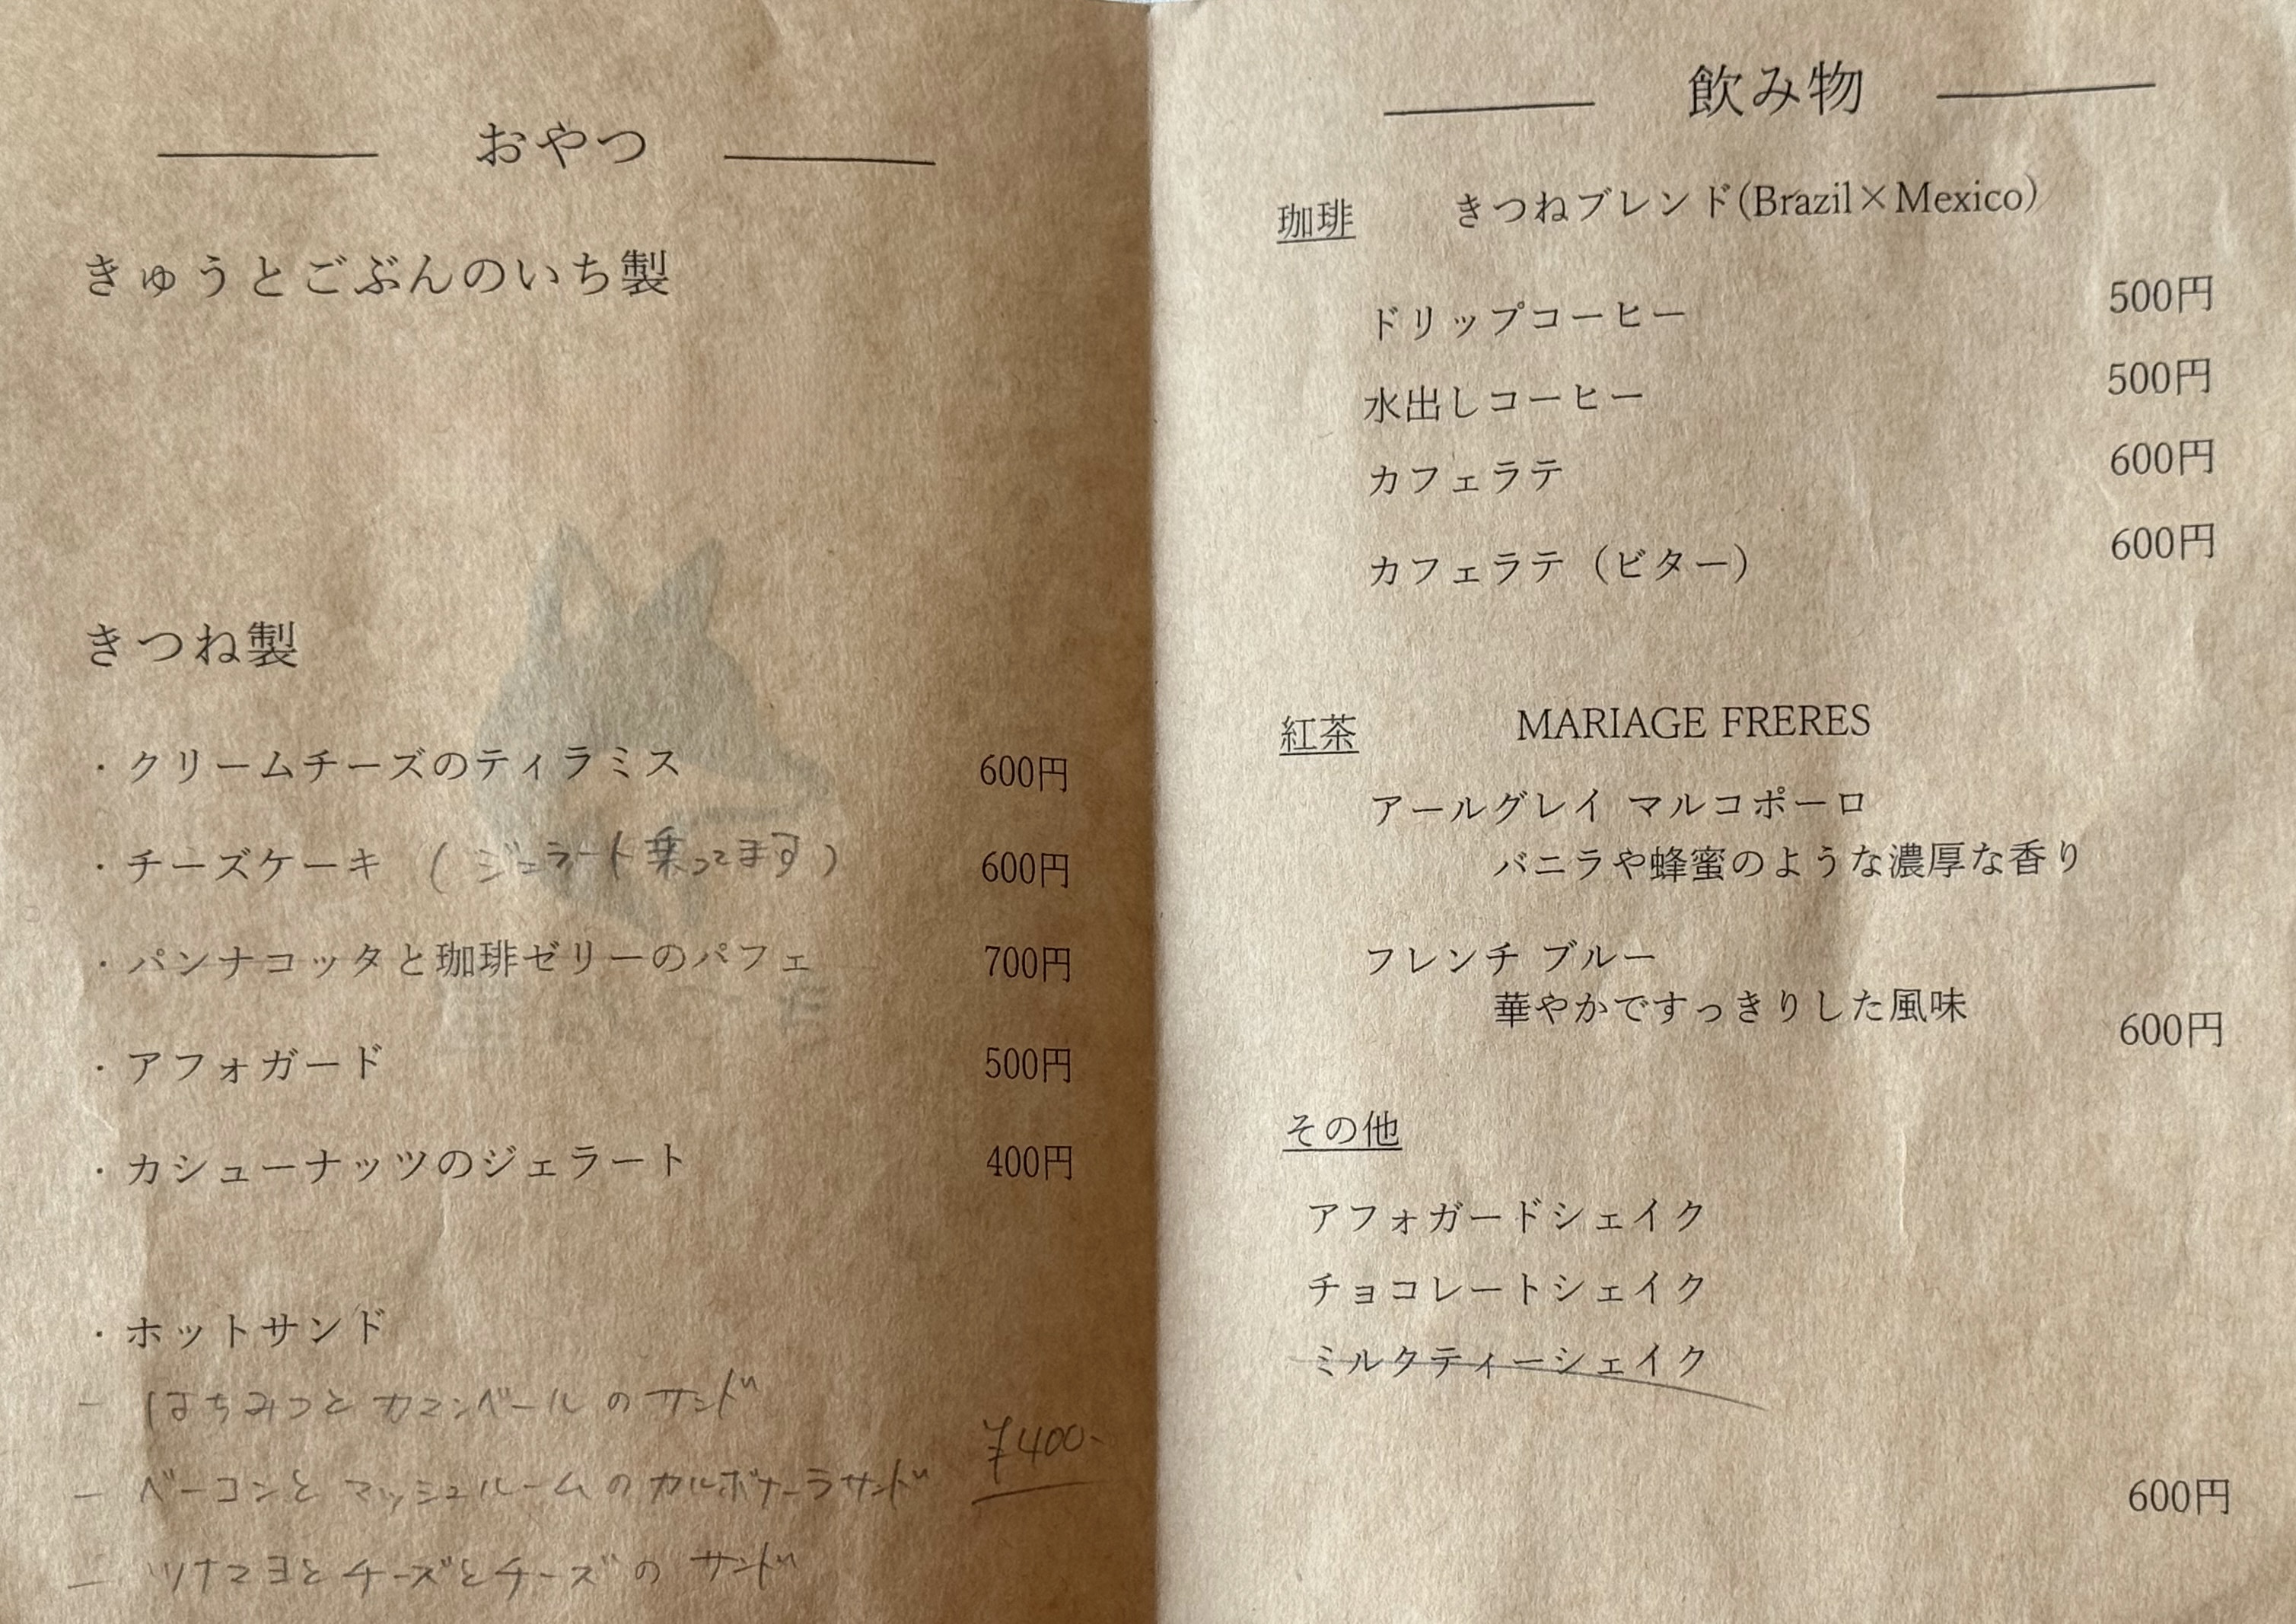 おやつ
きゅうとごぶんのいち製
きつね製
・クリームチーズのティラミス 600円
・チーズケーキ (ジェラート乗ってます) 600円
・パンナコッタと珈琲ゼリーのパフェ 700円
・アフォガード 500円
・カシューナッツのジェラート 400円
・ホットサンド
― はちみつとカマンベールのサンド
¥400-
― ベーコンとマッシュルームのカルボナーラサンド
― ツナマヨとチーズとチーズのサンド
飲み物
珈琲 きつねブレンド(Brazil×Mexico)
ドリップコーヒー 500円
水出しコーヒー 500円
カフェラテ 600円
カフェラテ（ビター） 600円
紅茶 MARIAGE FRERES
アールグレイ マルコポーロ
バニラや蜂蜜のような濃厚な香り
フレンチ ブルー
華やかですっきりした風味
600円
その他
アフォガードシェイク
チョコレートシェイク
ミルクティーシェイク
600円